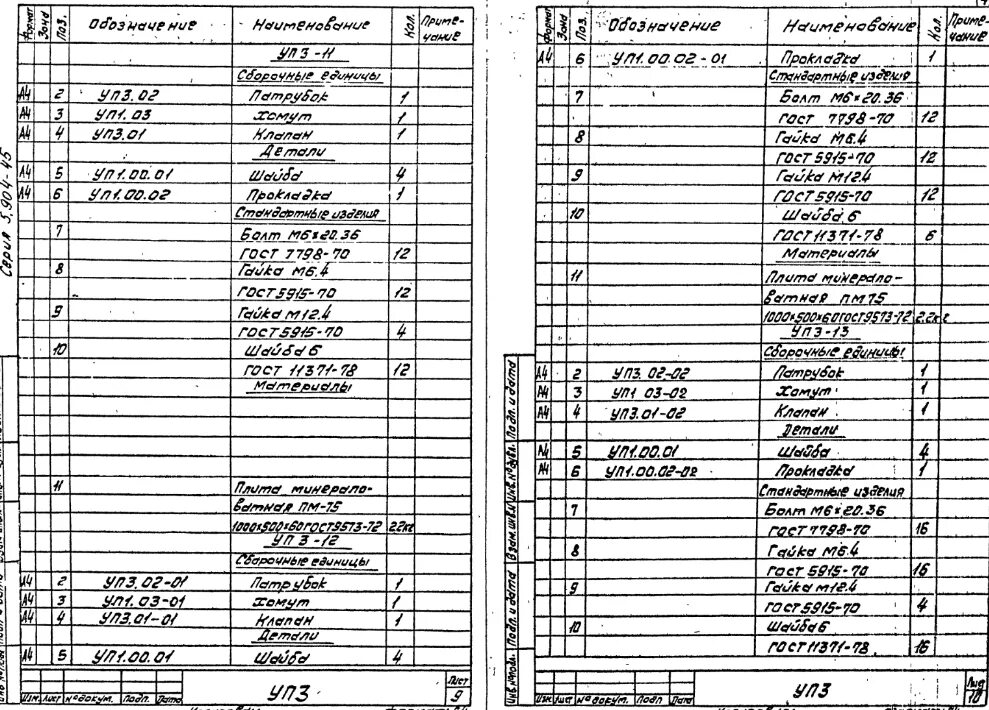 Формат Зона Поз. Обозначение Наименование Кол. Приме-
чание
УП3-11
Сборочные единицы
А4 2 УП3.02 Патрубок 1
А4 3 УП1.03 Хомут 1
А4 4 УП3.01 Клапан 1
Детали
А4 5 УП1.00.01 Шайба 4
А4 6 УП1.00.02 Прокладка 1
Стандартные изделия
7 Болт М6×20.36
ГОСТ 7798-70 12
8 Гайка М6.4
ГОСТ 5915-70 12
9 Гайка М12.4
ГОСТ 5915-70 4
10 Шайба 6
ГОСТ 11371-78 12
Материалы
11 Плита минерало-
ватная ПМ-75
1000×500×60 ГОСТ 9573-72 2.2кг
УП3-12
Сборочные единицы
А4 2 УП3.02-01 Патрубок 1
А4 3 УП1.03-01 Хомут 1
А4 4 УП3.01-01 Клапан 1
Детали
А4 5 УП1.00.01 Шайба 4
Изм. Лист № докум. Подп. Дата
УП3
Лист
9
Серия 5.904-45
Формат Зона Поз. Обозначение Наименование Кол. Приме-
чание
А4 6 УП1.00.02-01 Прокладка 1
Стандартные изделия
7 Болт М6×20.36
ГОСТ 7798-70 12
8 Гайка М6.4
ГОСТ 5915-70 12
9 Гайка М12.4
ГОСТ 5915-70 12
10 Шайба 6
ГОСТ 11371-78 6
Материалы
11 Плита минерало-
ватная ПМ75
1000×500×60 ГОСТ 9573-72 2.2кг
УП3-13
Сборочные единицы
А4 2 УП3.02-02 Патрубок 1
А4 3 УП1 03-02 Хомут 1
А4 4 УП3.01-02 Клапан 1
Детали
А4 5 УП1.00.01 Шайба 4
А4 6 УП1.00.02-02 Прокладка 1
Стандартные изделия
7 Болт М6×20.36
ГОСТ 7798-70 16
8 Гайка М6.4
ГОСТ 5915-70 16
9 Гайка М12.4
ГОСТ 5915-70 4
10 Шайба 6
ГОСТ 11371-78 16
Изм. Лист № докум. Подп. Дата
УП3
Лист
10
Инв.№подл. Подп. и дата Взам.инв.№ Инв.№дубл. Подп. и дата